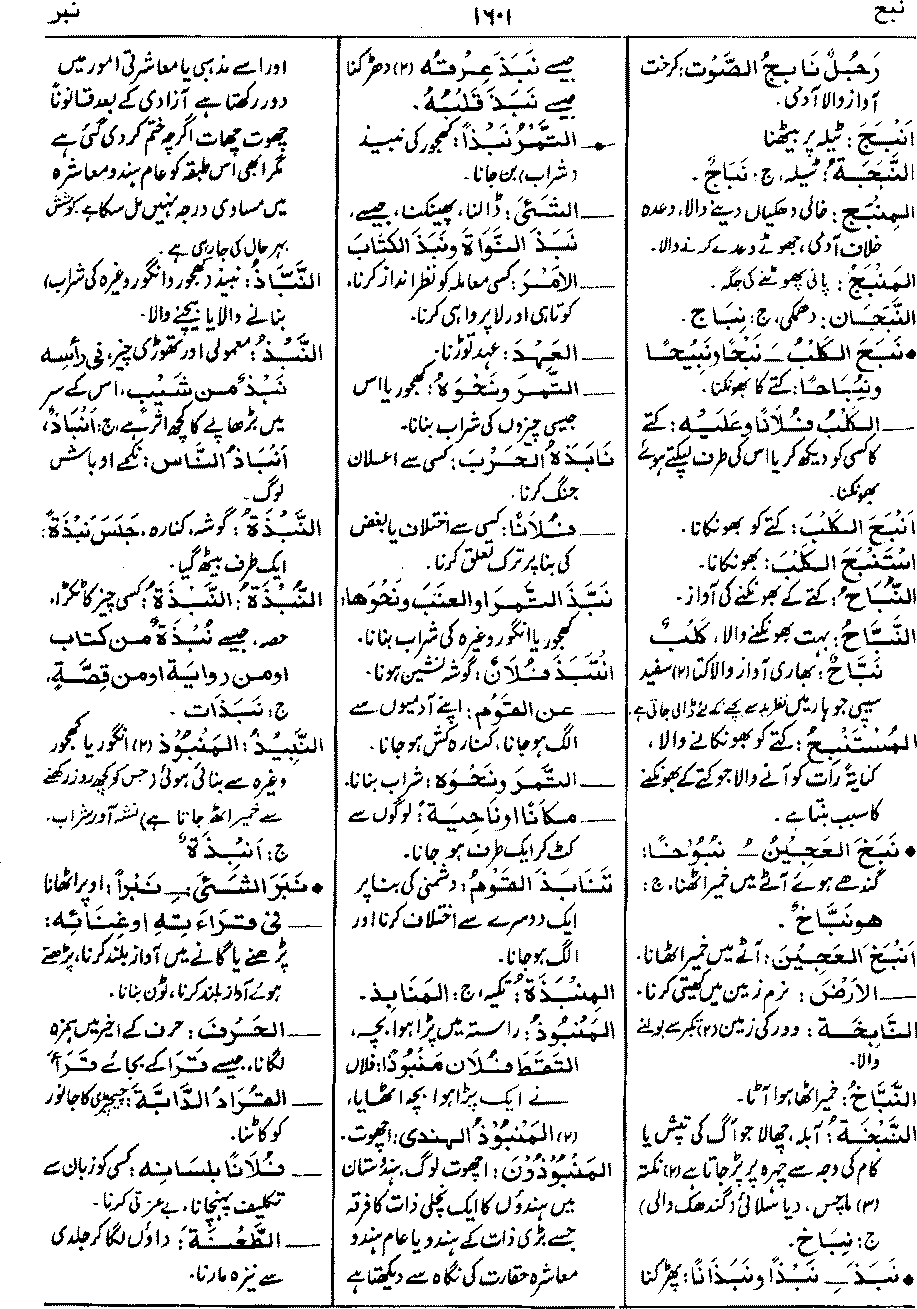 نبح
۱۶۰۱
نبر
رَجُلٌ نَابِجُ الصَّوْت: کرخت
آواز والا آدمی.
اَنْبَجَ: ٹیلہ پر بیٹھنا
النَّبَجَةُ: ٹیلہ، ج: نَبَاجٌ.
المِنْبَج: خالی دھمکیاں دینے والا، وعدہ
خلاف آدمی، جھوٹے وعدے کرنے والا.
المَنْبَجُ: پانی پھوٹنے کی جگہ.
النَّبَجَان: دھمکی، ج: نِبَاج.
• نَبَحَ الكَلْبُ ـَ نَبْحًا ونَبِيْحًا
ونُبَاحًا: کتے کا بھونکنا.
ــ الكَلْبُ فُلَانًا وعَلَيْهِ: کتے
کا کسی کو دیکھ کر یا اس کی طرف لپکتے ہوئے
بھونکنا.
اَنْبَحَ الكَلْبَ: کتے کو بھونکانا.
اسْتَنْبَحَ الكَلْبَ: بھونکانا.
النُّبَاحُ: کتے کے بھونکنے کی آواز.
النَّبَّاحُ: بہت بھونکنے والا، كَلْبٌ
نَبَّاحٌ: بھاری آواز والا کتا (۲) سفید
سیپی جو ہار میں نظر بد سے بچنے کے لئے ڈالی جاتی ہے.
المُسْتَنْبِحُ: کتے کو بھونکانے والا،
کنایۃً رات کو آنے والا جو کتے کے بھونکنے
کا سبب بنتا ہے.
• نَبَخَ العَجِيْنُ ـُ نُبُوْخًا:
گندھے ہوئے آٹے میں خمیر اٹھنا، ج:
هو نَبَّاخٌ.
اَنْبَخَ العَجِيْنَ: آٹے میں خمیر اٹھانا.
ــ الاَرْضَ: نرم زمین میں کھیتی کرنا.
النَّابِخَة: دور کی زمین (۲) تکبر سے بولنے
والا.
النَّبَّاخُ: خمیر اٹھا ہوا آٹا.
النَّبْخَةُ: آبلہ، چھالا جو آگ کی تپش یا
کام کی وجہ سے چہرہ پر پڑ جاتا ہے (۲) نکتہ
(۳) ماچس، دیا سلائی (گندھک والی)
ج: نِبَاخ.
• نَبَذَ ـِ نَبْذًا ونَبَذَانًا: پھڑکنا
جیسے نَبَذَ عِرْقُهُ (۲) دھڑکنا
جیسے نَبَذَ قَلْبُهُ.
• ــ التَّمْرُ نَبْذًا: کھجور کی نبیذ
(شراب) بن جانا.
ــ الشَّئَ: ڈالنا، پھینکنا، جیسے،
نَبَذَ النَّوَاةَ ونَبَذَ الكِتَابَ
ــ الاَمْرَ: کسی معاملہ کو نظر انداز کرنا،
کوتاہی اور لاپرواہی کرنا.
ــ العَهْدَ: عہد توڑنا.
ــ التَّمرَ ونَحْوَهُ: کھجور یا اس
جیسی چیزوں کی شراب بنانا.
نَابَذَهُ الحَرْبَ: کسی سے اعلان
جنگ کرنا.
ــ فُلَانًا: کسی سے اختلاف یا بغض
کی بنا پر ترک تعلق کرنا.
نَبَّذَ التَّمرَ او العِنَبَ ونَحْوَهَا:
کھجور یا انگور وغیرہ کی شراب بنانا.
انْتَبَذَ فُلَانٌ: گوشہ نشین ہونا.
ــ عن القَوْمِ: اپنے آدمیوں سے
الگ ہو جانا، کنارہ کش ہو جانا.
ــ التَّمرَ ونَحْوَهُ: شراب بنانا.
ــ مَكَانًا او نَاحِيَةً: لوگوں سے
کٹ کر ایک طرف ہو جانا.
تَنَابَذَ القَوْمُ: دشمنی کی بنا پر
ایک دوسرے سے اختلاف کرنا اور
الگ ہو جانا.
المِنْبَذَةُ: تکیہ، ج: المَنَابِذ.
المَنْبُوْذُ: راستہ میں پڑا ہوا بچہ،
التَقَطَ فُلَان مَنْبُوْذًا: فلاں
نے ایک پڑا ہوا بچہ اٹھایا،
(۲) المَنْبُوْذُ الهندى: اچھوت.
المَنْبُوْذُوْنَ: اچھوت لوگ، ہندوستان
میں ہندوؤں کا ایک نچلی ذات کا فرقہ
جسے بڑی ذات کے ہندو یا عام ہندو
معاشرہ حقارت کی نگاہ سے دیکھتا ہے
اور اسے مذہبی یا معاشرتی امور میں
دور رکھتا ہے آزادی کے بعد قانوناً
چھوت چھات اگرچہ ختم کر دی گئی ہے
مگر ابھی اس طبقہ کو عام ہندو معاشرہ
میں مساوی درجہ نہیں مل سکا ہے کوشش
بہر حال کی جا رہی ہے.
النَّبَّاذُ: نبیذ (کھجور و انگور وغیرہ کی شراب)
بنانے والا یا بیچنے والا.
النَّبْذُ: معمولی اور تھوڑی چیز، فى رأسِه
نَبْذٌ من شَيْبٍ، اس کے سر
میں بڑھاپے کا کچھ اثر ہے، ج: اَنْبَاذٌ،
اَنْبَاذُ النَّاس: نکمے اوباش
لوگ.
النَّبْذَةُ: گوشہ، کنارہ، جَلَسَ نَبْذَةً:
ایک طرف بیٹھ گیا.
النُّبْذَةُ: النَّبْذَةُ: کسی چیز کا ٹکڑا،
حصہ، جیسے نُبْذَةٌ من كتاب
او من رواية او من قِصَّةٍ،
ج: نُبَذَات.
النَّبِيْذُ: المَنْبُوْذ (۲) انگور یا کھجور
وغیرہ سے بنائی ہوئی (جس کو کچھ روز رکھنے
سے خمیر اٹھ جاتا ہے) نشہ آور شراب.
ج: اَنْبِذَةٌ
• نَبَرَ الشَّئَ ـِ نَبْراً: اوپر اٹھانا
ــ فى قِرَاءَتِهِ او غِنَائِهِ:
پڑھنے یا گانے میں آواز بلند کرنا، پڑھتے
ہوئے آواز بلند کرنا، ٹون بنانا.
ــ الحَرْفَ: حرف کے اخیر میں ہمزہ
لگانا، جیسے قَرَا کے بجائے قَرَأَ
ــ القُرَادُ الدَّابَّةَ: چیچڑی کا جانور
کو کاٹنا.
ــ فُلَانًا بِلِسَانِهِ: کسی کو زبان سے
تکلیف پہنچانا، بے عزتی کرنا.
ــ الطَّعْنَةَ: داؤں لگا کر جلدی
سے نیزہ مارنا.